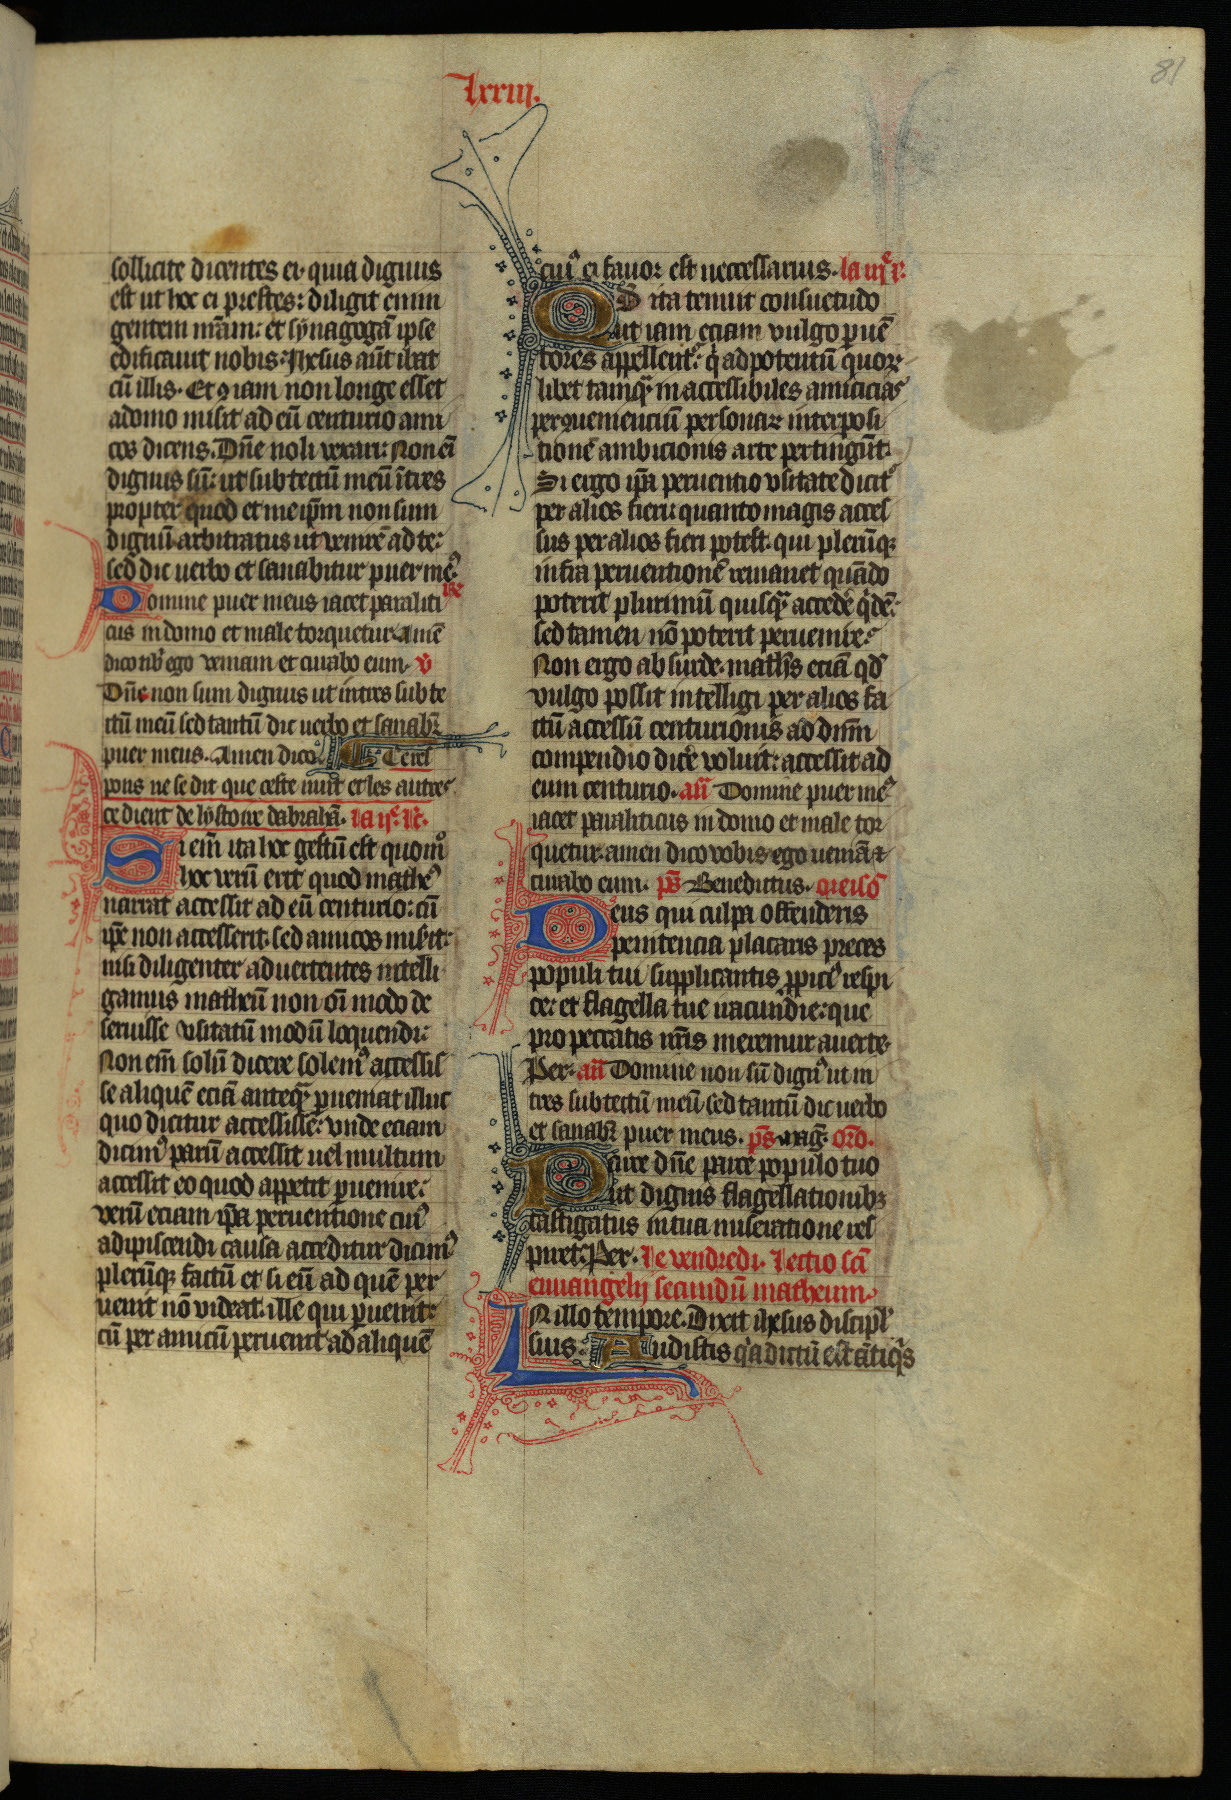 lxxiii.
81
sollicite dicentes ei· quia dignus
est ut hoc ei prestes: diligit enim
gentem nr̄am: et synagogā ipse
edificauit nobis: Jhesus aūt ibat
cū illis. Et quam non longe esset
a domo misit ad eū centurio ami
cos dicens. Dn̄e noli vexari: Non em̄
dignus sū: ut sub tectū meū ītres
propter quod et me ip̄m non sum
dignū arbitratus ut venirē ad te:
sed dic uerbo et sanabitur puer meꝰ
Domine puer meus iacet paraliti
cus in domo et male torquetur. Amē
dico tibi ego veniam et curabo eum. v̄
Dn̄e non sum dignus ut intres sub te
ctū meū sed tantū dic uerbo et sanabit̄
puer meus. Amen dico. Ce res
pons ne se dit que ceste nuit et les autres
ce dient de lystoire dabrahā. la ijͤ. lc̄.
Si em̄ ita hoc gestū est quomͦ
hoc verū erit quod matheꝰ
narrat accessit ad eū centurio: cū
ip̄e non accesserit· sed amicos misit:
nisi diligenter aduertentes intelli
gamus matheū non oī modo de
seruisse vsitatū modū loquendi:
Non em̄ solū dicere solemꝰ accessis
se aliquē eciā anteqͣ puemat illuc
quo dicitur accessisse: vnde eciam
dicimꝰ parū accessit uel multum
accessit eo quod appetit puenire:
verū eciam ip̄a peruentione cuiꝰ
adipiscendi causa acceditur dicimꝰ
plerūqꝫ factū et si eū ad quē per
uenit nō videat· ille qui puenit:
cū per amicū peruenit ad aliquē
cuiꝰ ei fauor est neccessarius. la iijͤ l.
Quod ita tenuit consuetudo
ut iam eciam vulgo puē
tores appellentꝰ: qͥ ad potentū quorū
libet tamqͣ in accessibiles amicicias
per quenienciū personarū interposi
tionē ambicionis arte pertingūt.
Si ergo ip̄a peruentio vsitate dicitꝰ
per alios fieri: quanto magis acces
sus per alios fieri potest· qui plerūqꝫ
infra peruentionē remanet quādo
poterit plurimū quisqͣ accedē qͥdē:
sed tamen nō poterit peruenire:
Non ergo absurde· matheꝰ eciā qd̄
vulgo possit intelligi per alios fa
ctū accessū centurionis ad dn̄m
compendio dicē voluit: accessit ad
eum centurio. an̄ Domine puer meꝰ
iacet paraliticus in domo et male tor
quetur: amen dico vobis ego ueniā ⁊
curabo eum. ps̄ Benedictus. oreisō
Deus qui culpa offenderis
penitencia placaris preces
populi tui supplicantis ppiciꝰ respi
ce: et flagella tue iracundie: que
pro peccatis nr̄is meremur auerte.
Per. an̄ Domine non sū dignꝰ ut in
tres sub tectū meū sed tantū dic uerbo
et sanabit̄ puer meus. ps̄ magͭ. orō.
Parce dn̄e parce populo tuo
ut dignis flagellationibꝫ
castigatus in tua miseratione res
piret. Per. le vendredi. lectio sc̄i
euuangelij secundū matheum.
IN illo tempore. Dixit ihesus discipl̄
suis. Audistis qͥa dictū est ātiqͥs